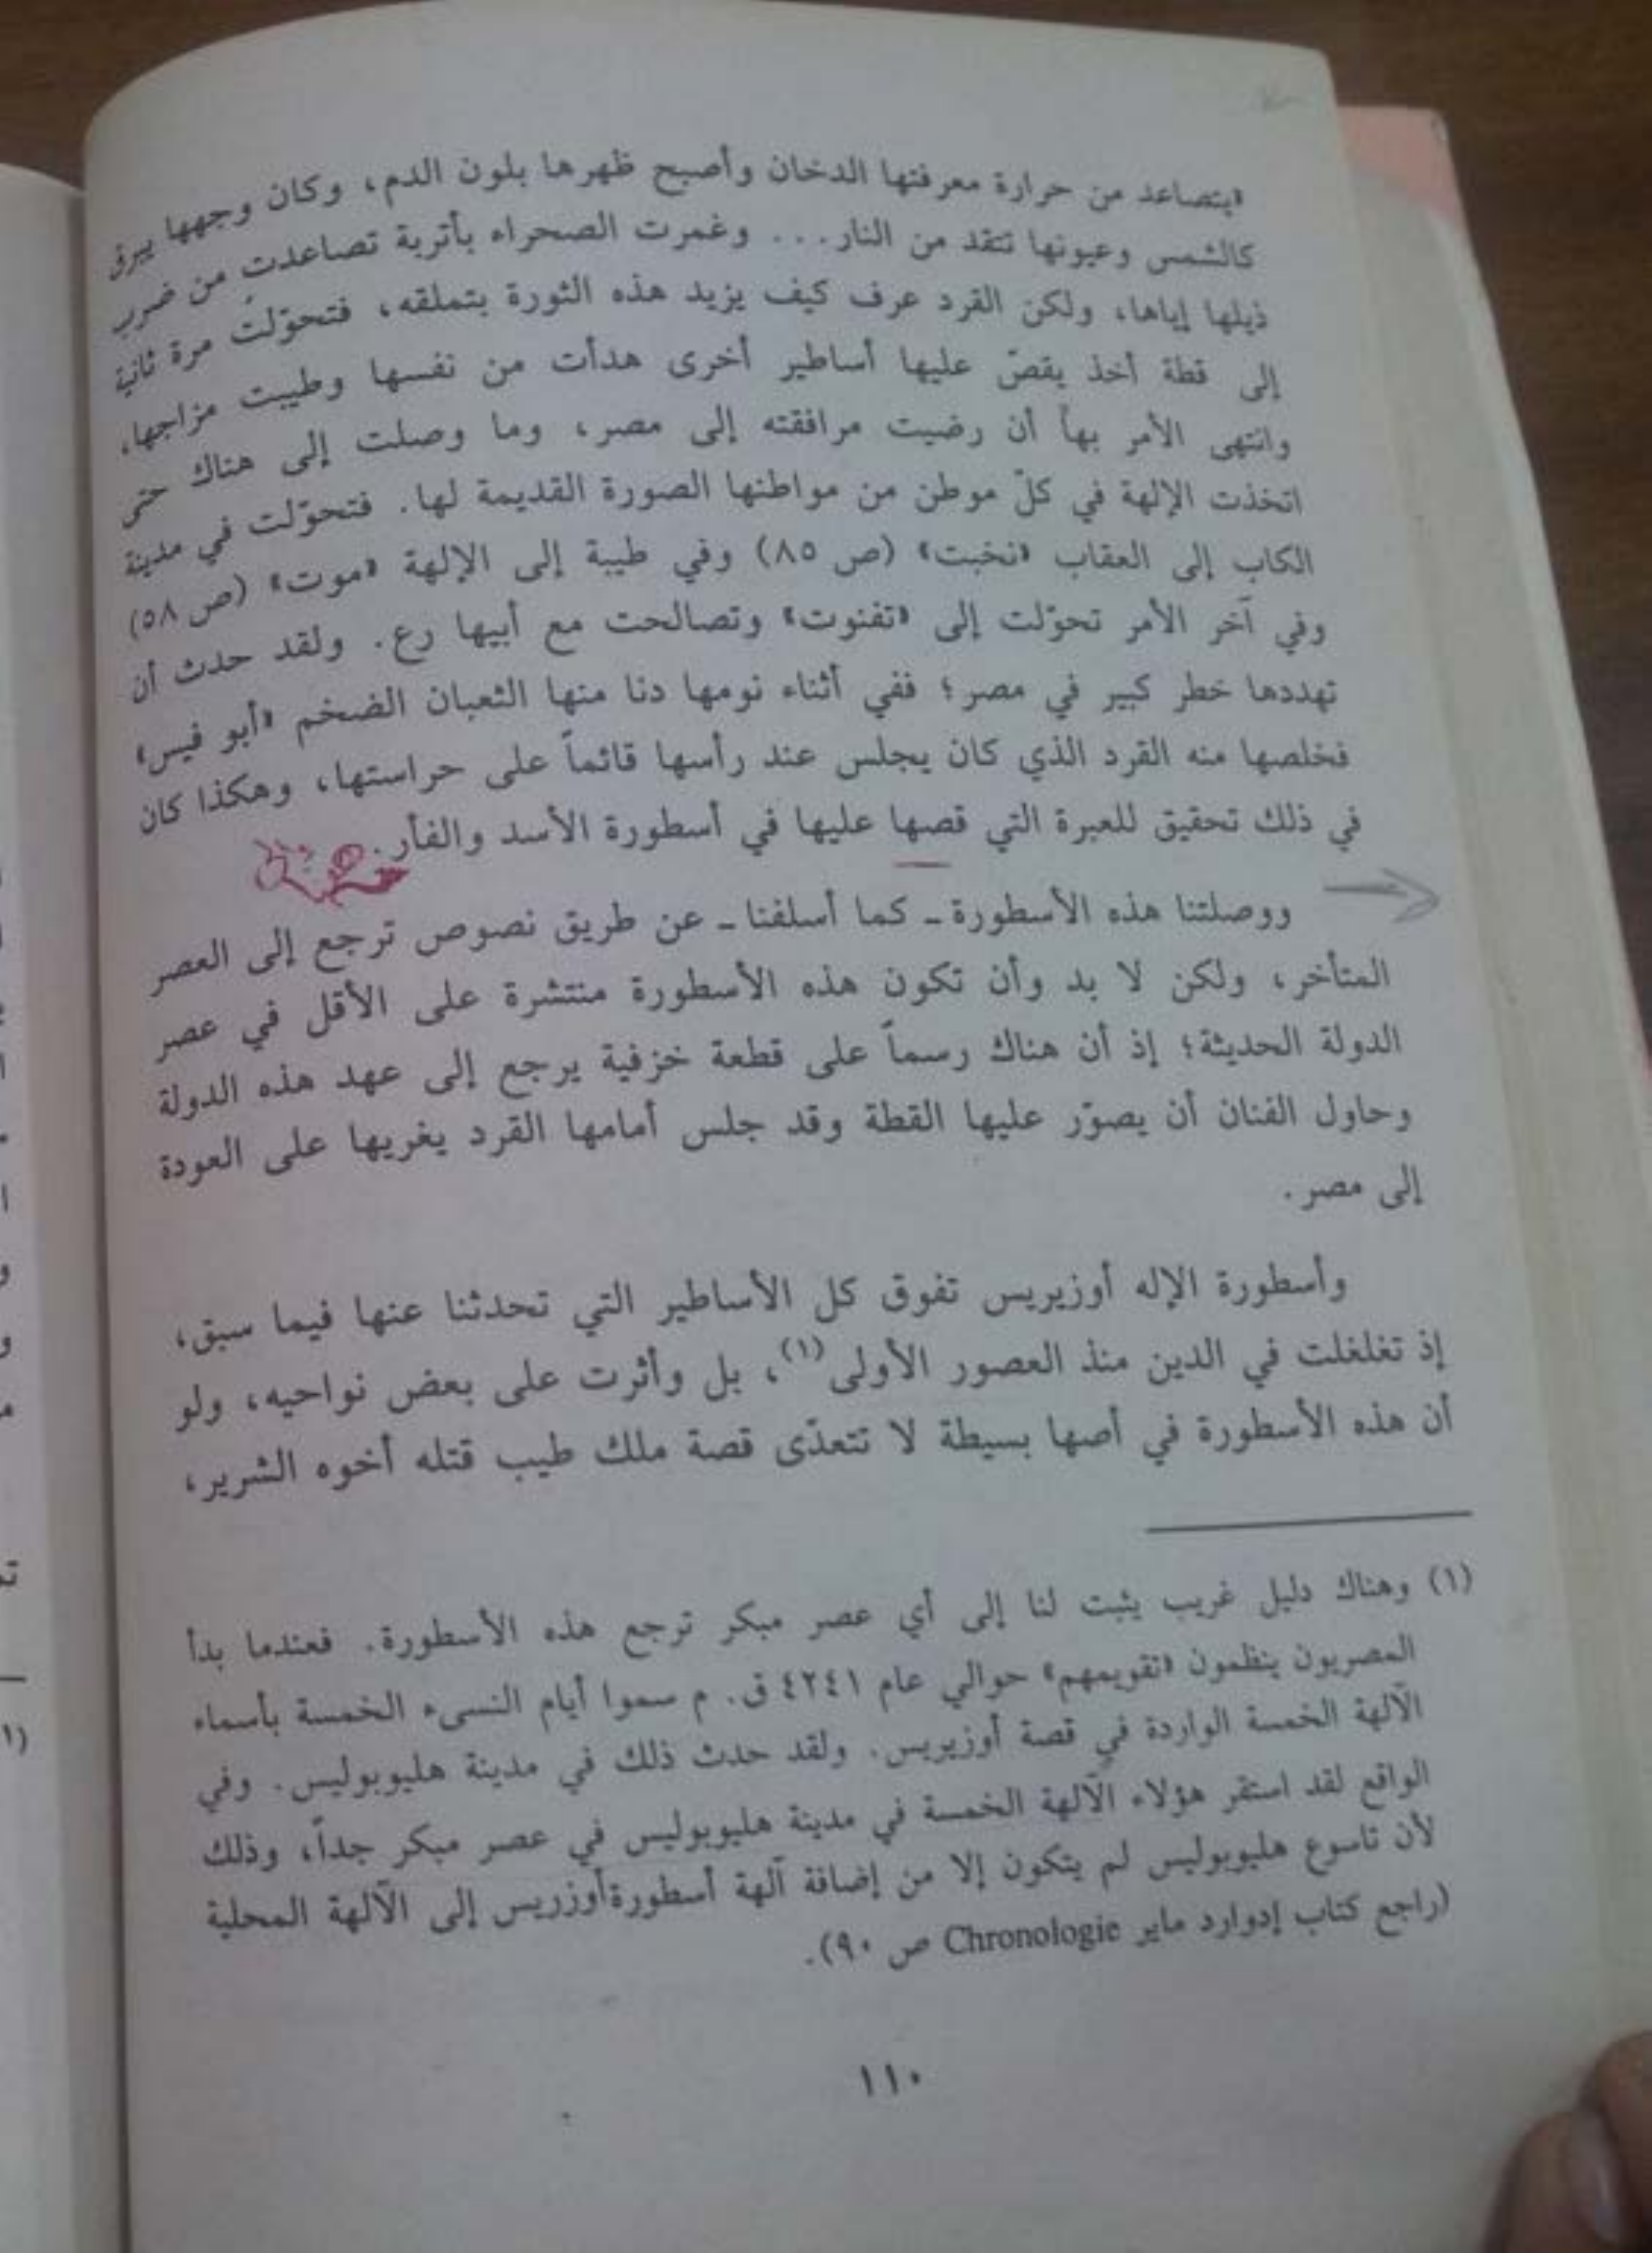 «يتصاعد من حرارة معرفتها الدخان وأصبح ظهرها بلون الدم، وكان وجهها يبرق
كالشمس وعيونها تتقد من النار... وغمرت الصحراء بأتربة تصاعدت من ضرب
ذيلها إياها، ولكن القرد عرف كيف يزيد هذه الثورة بتملقه، فتحوّلت مرة ثانية
إلى قطة أخذ يقصّ عليها أساطير أخرى هدأت من نفسها وطيبت مزاجها،
وانتهى الأمر بها أن رضيت مرافقته إلى مصر، وما وصلت إلى هناك حتى
اتخذت الإلهة في كلّ موطن من مواطنها الصورة القديمة لها. فتحوّلت في مدينة
الكاب إلى العقاب «نخبت» (ص ٨٥) وفي طيبة إلى الإلهة «موت» (ص ٥٨)
وفي آخر الأمر تحوّلت إلى «تفنوت» وتصالحت مع أبيها رع. ولقد حدث أن
تهددها خطر كبير في مصر؛ ففي أثناء نومها دنا منها الثعبان الضخم «أبو فيس»
فخلصها منه القرد الذي كان يجلس عند رأسها قائماً على حراستها، وهكذا كان
في ذلك تحقيق للعبرة التي قصها عليها في أسطورة الأسد والفأر.
ووصلتنا هذه الأسطورة ـ كما أسلفنا ـ عن طريق نصوص ترجع إلى العصر
المتأخر، ولكن لا بد وأن تكون هذه الأسطورة منتشرة على الأقل في عصر
الدولة الحديثة؛ إذ أن هناك رسماً على قطعة خزفية يرجع إلى عهد هذه الدولة
وحاول الفنان أن يصوّر عليها القطة وقد جلس أمامها القرد يغريها على العودة
إلى مصر.
وأسطورة الإله أوزيريس تفوق كل الأساطير التي تحدثنا عنها فيما سبق،
إذ تغلغلت في الدين منذ العصور الأولى(١)، بل وأثرت على بعض نواحيه، ولو
أن هذه الأسطورة في أصها بسيطة لا تتعدّى قصة ملك طيب قتله أخوه الشرير،
(١) وهناك دليل غريب يثبت لنا إلى أي عصر مبكر ترجع هذه الأسطورة. فعندما بدأ
المصريون ينظمون «تقويمهم» حوالي عام ٤٢٤١ ق. م سموا أيام النسىء الخمسة بأسماء
الآلهة الخمسة الواردة في قصة أوزيريس. ولقد حدث ذلك في مدينة هليوبوليس. وفي
الواقع لقد استقر هؤلاء الآلهة الخمسة في مدينة هليوبوليس في عصر مبكر جداً، وذلك
لأن تاسوع هليوبوليس لم يتكون إلا من إضافة آلهة أسطورةأوزريس إلى الآلهة المحلية
(راجع كتاب إدوارد ماير Chronologie ص ٩٠).
١١٠